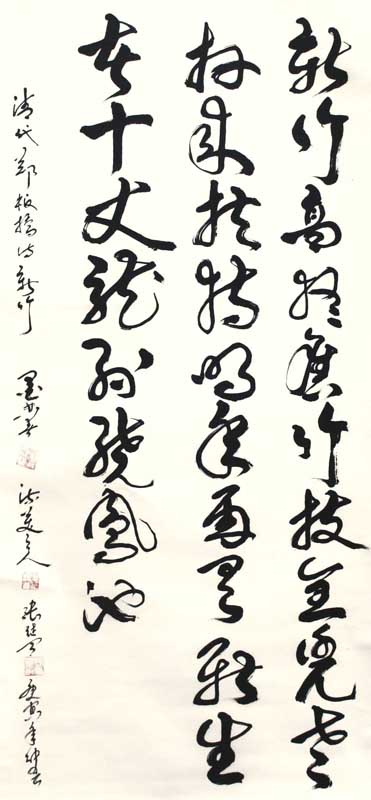 新竹高於舊竹枝全憑老
幹為扶持明年再有新生
者十丈龍孫繞鳳池
清代鄭板橋詩新竹 庚寅年仲春